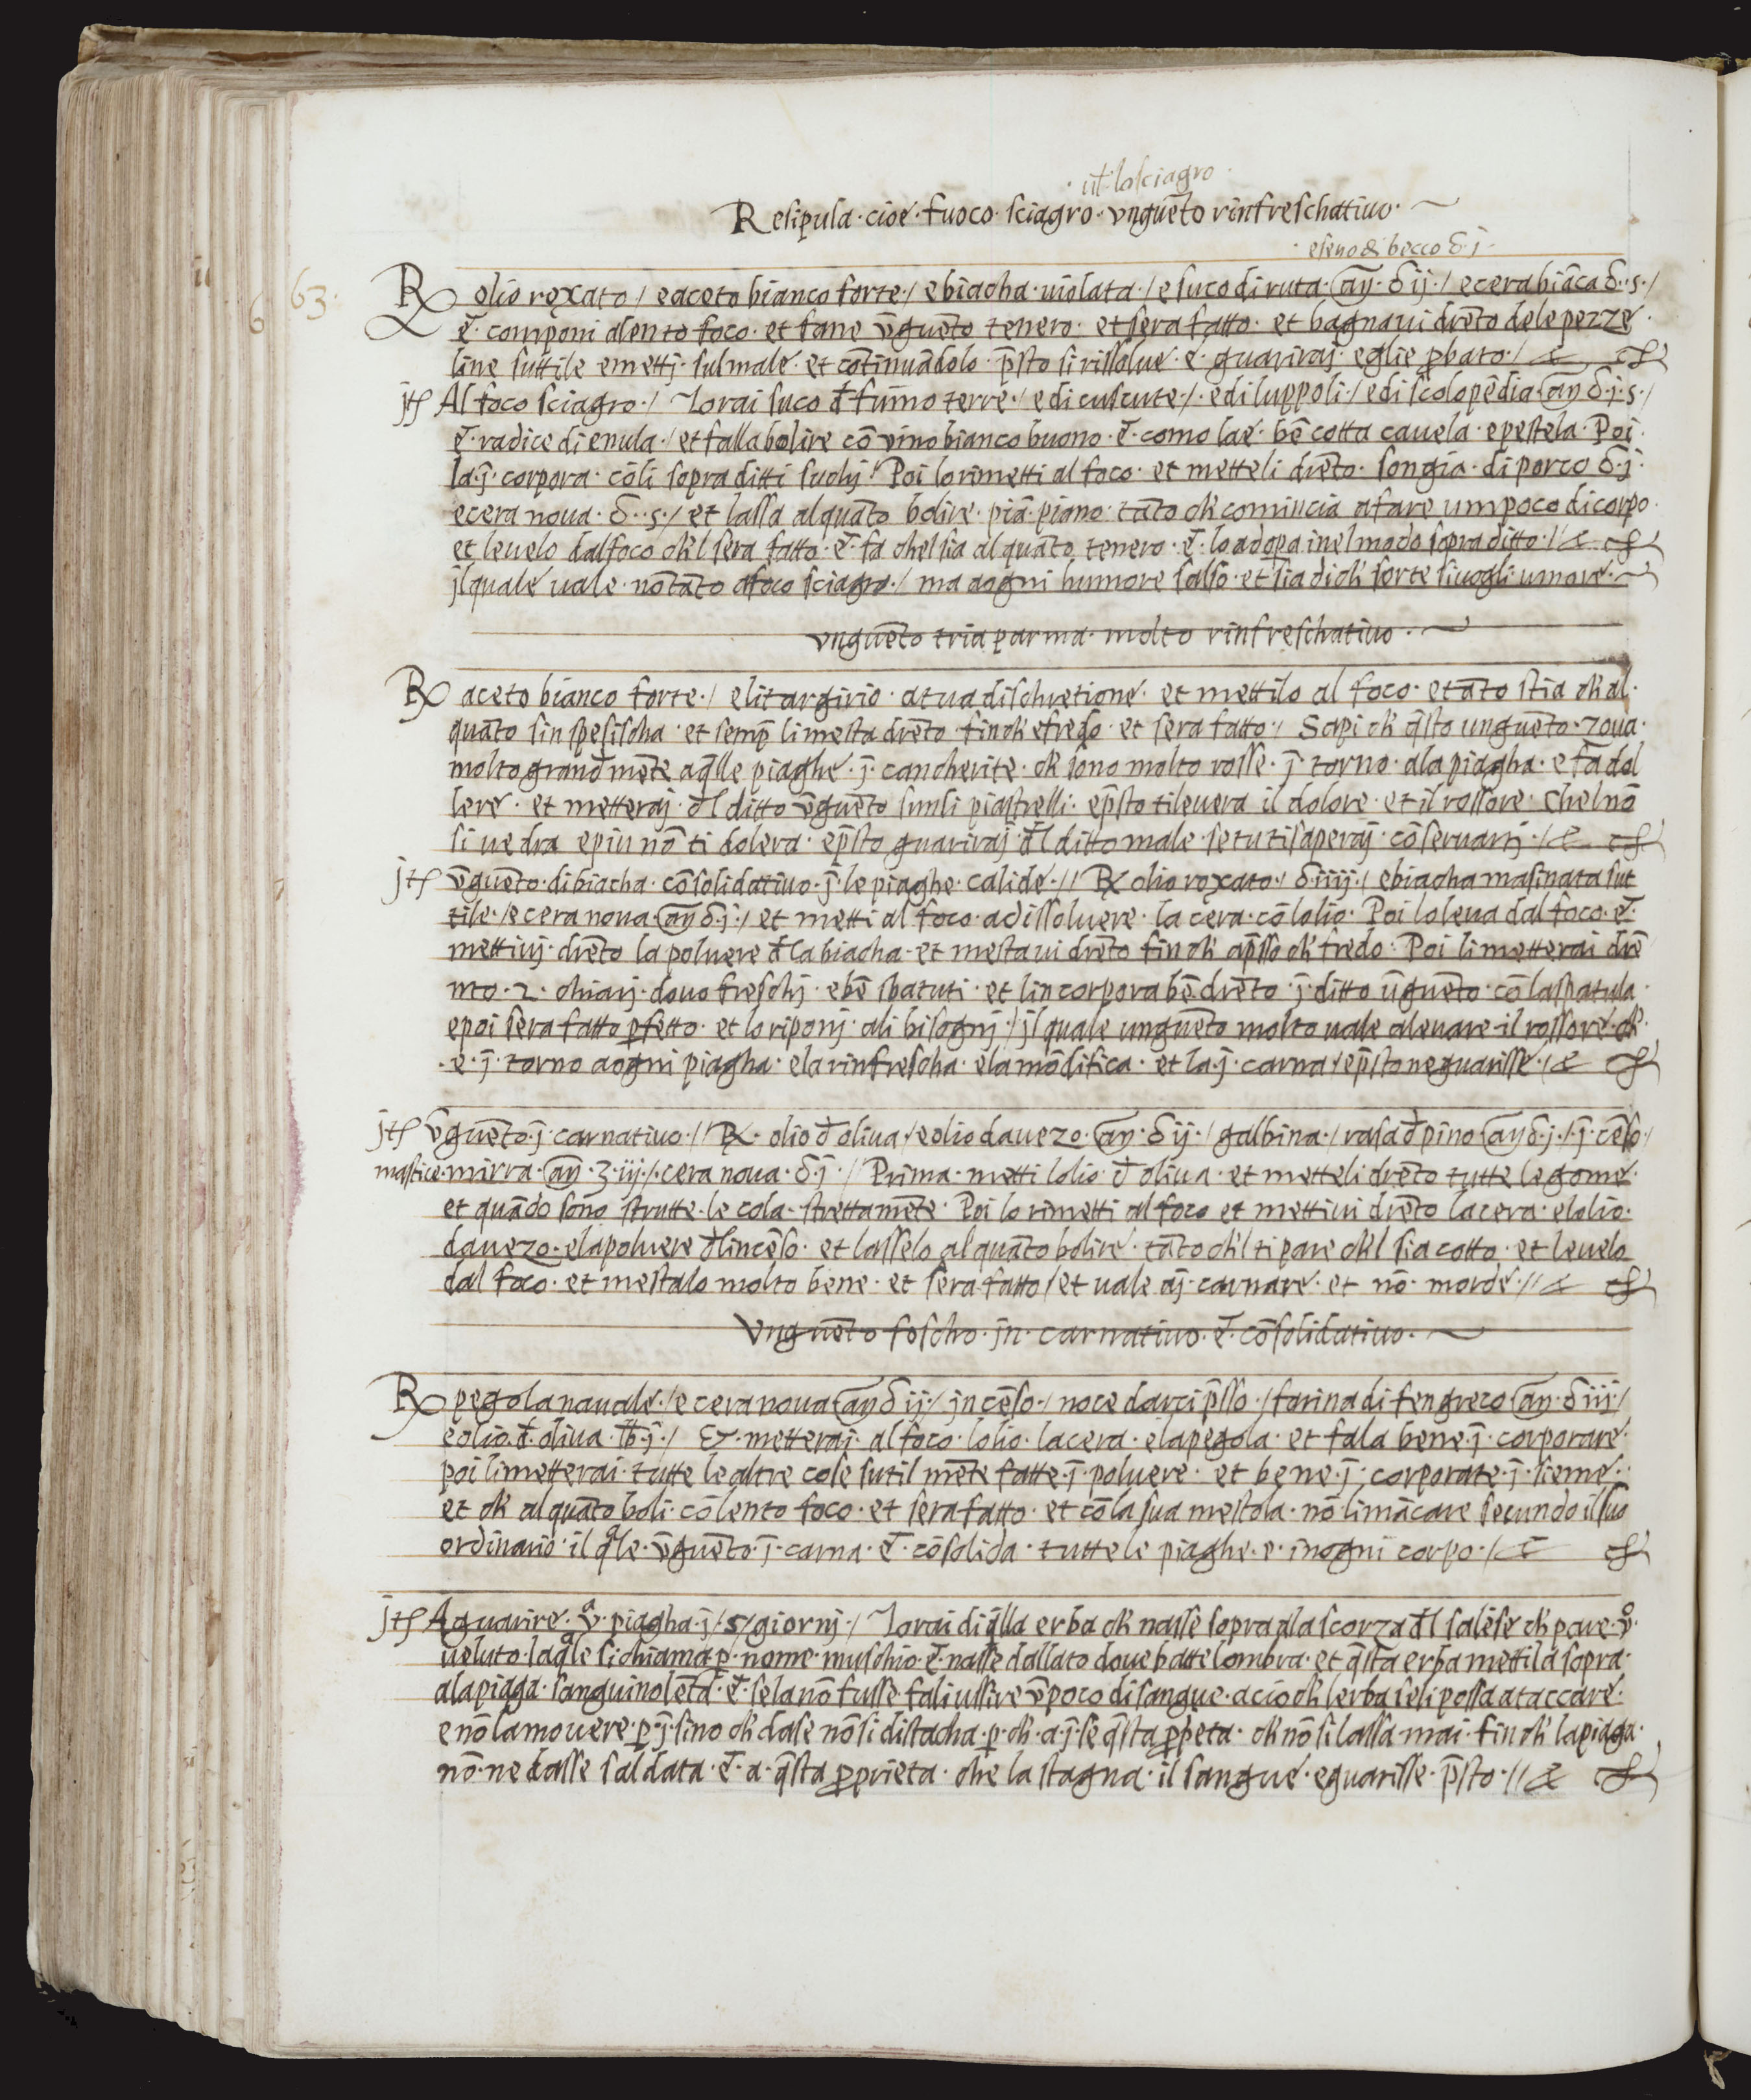 · ut lasciagro ·
Resipula · cioe · fuoco · sciagro · unguēto rinfreschatiuo ·
· eseuo di becco δ · j ·
63 ·
℞ olio roxato / e aceto bianco forte · / e biacha · uiolata · / e suco di ruta · aŋ · δ ij · / e cera biāca δ · s · /
Et · componi a lento foco · et fane ūguēto tenero · et sera fatto · et bagnaui drēto dele pezze ·
line suttile e metti · sul male · et cōtinuādolo · p̄sto si rissolue · e · guariraj · eglie ꝓbato · / &
jtꝭ Al foco sciagro · / Torai suco đ fūmo terre · / e di cuscute / · e di luppoli · / e di scolopēdia · aŋ δ · j · s · /
Et · radice di enula · / et falla bolire cō vino bianco buono · Et · como lae · bē cotta cauela · e pestela · Poi ·
la · j̄ · corpora · cōli sopra ditti suchj · / Poi lo rimetti al foco · et metteli drēto · songia · di porco δ · j ·
e cera noua · δ · s · / et lassa alquāto bolire · piā · piano · tāto ch̄ comincia a fare um poco di corpo ·
et leuelo dal foco ch̄l sera fatto · Et · fa chel sia alquāto tenero · Et · lo adopa inel modo sopra ditto · // &
jl quale uale · nō tāto a foco sciagro · / ma a ogni humore salso · et sia di ch̄ sorte si uogli umore ·
unguēto tria parma · molto rinfreschatiuo ·
℞ aceto bianco forte · / e litargirio · a tua dischretione · et mettilo al foco · e tāto stia ch̄ al ·
quāto sinspesischa · et semp̄ li mesta drēto · fin ch̄ e fredo · et sera fatto · / Sapi ch̄ q̄sto unguēto · zoua ·
molto granđmēte aq̄lle piaghe · j̄ · cancherite · ch̄ sono molto rosse · j̄ · torno · ala piagha · e fā dol
lere · et metteraj · đl ditto ūguēto sunli piastrelli · e p̄sto ti leuera il dolore · et il rossore · chel nō
si uedra e piu nō ti dolera · e p̄sto guariraj · đl ditto male · se tu ti saperaj · cōseruarti · / &
jtꝭ ūguēto · di biacha · cōsolidatiuo · j̄ · le piaghe · calide · // ℞ olio roxato · / δ · iiij · / e biacha masinata sut
tile · / e cera noua · aŋ δ · j · / et metti al foco · a dissoluere · la cera · cō lolio · Poi lo leua dal foco · Et ·
mettiuj · drēto la poluere đ la biacha · et mestaui drēto fin ch̄ ap̄sso ch̄ fredo · Poi li metterai drē
mo · 2 · chiarj · douo freschj · e bē sbatuti · et lincorpora bē drēto · j̄ · ditto ūguēto · cō la spatula ·
e poi sera fatto ꝑfetto · et lo riponj · ali bisognj · / jl quale unguēto molto uale a leuare · il rossore · ch̄ ·
· e · j̄ · torno a ogni piagha · e la rinfrescha · e la mōdifica · et la · j̄ · carna / e p̄sto ne guarisse · / &
jtꝭ ūguēto · j̄ · carnatiuo · // ℞ · olio đ oliua · / e olio dauezo · aŋ · δ ij · / galbina · / rasa đ pino · aŋ δ · j · / · j̄ · cēso · /
mastice · mirra · aŋ · ʒ · iij · / · cera noua · δ · j · / Prima · metti lolio · đ oliua · et metteli drēto tutte le gome ·
et quādo sōno strutte · le cola · strettamēte · Poi lo rimetti al foco et mettiui drēto la cera · e lolio ·
dauezo · e la poluere đ lincēso · et lasselo alquāto bolire · tāto ch̄l ti pare ch̄l sia cotto · et leuelo
dal foco · et mestalo molto bene · et sera fatto / et uale aj̄ · carnare · et nō · morde · // &
Unguēto foscho · jn · carnatiuo · Et · cōsolidatiuo ·
℞ pegola nauale · / e cera noua aŋ δ ij · / jn cēso · / noce darcip̄sso · / farina di fengreco · aŋ · δ iij · /
e olio · đ · oliua · ℔ · j · / Et · metteraj · al foco · lolio · la cera · e la pegola · et fala bene · j̄ · corporare ·
poi li metterai · tutte le altre cose sutil mēte fatte · j̄ · poluere · et bene · j̄ · corporate · j̄ · sieme ·
et ch̄ alquāto boli · cō lento foco · et sera fatto · et cō la sua mestola · nō li mācare secundo il suo
ordinario · il q̄le · ūguēto · j̄ · carna · Et · cōsolida · tutte le piaghe · e · in ogni corpo · / &
jtꝭ A guarire · ūᵃ · piagha · j̄ / 5 / giornj · / Torai di q̄lla erba ch̄ nasse sopra ala scorza đl salese ch̄ pare · ūᵒ ·
ueluto · la q̄le si chiama · ꝑ · nome · muschio · Et · nasse dallato doue batte lombra · et q̄sta erba mettila sopra ·
ala piaga · sanguinolēta · Et · se la nō fusse · fali ussire ū poco di sangue · acio ch̄ lerba seli possa ataccare ·
e nō la mouere · ꝑ · j̄ · sino ch̄ da se nō si distacha · ꝑ · ch̄ · a · j̄ · se q̄sta ꝓpeta · ch̄ nō si lassa mai · fin ch̄ la piaga ·
nō · ne dasse saldata · Et · a · q̄sta ꝓprieta · che la stagna · il sangue · e guarisse · p̄sto · // &